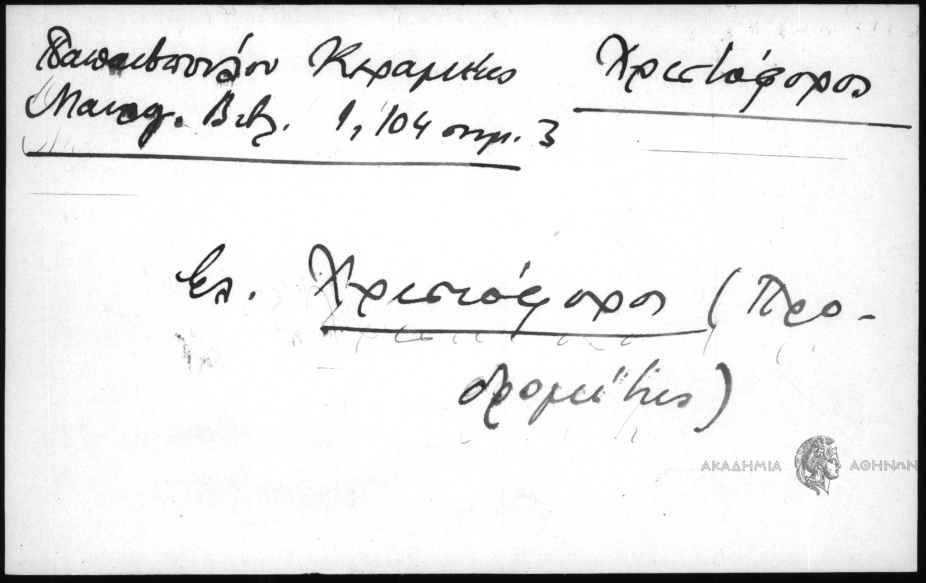 Παπαδοπούλου Κεραμεύς Χριστόφορος
Μαυρογ. Βιβλ. 1, 104 σημ. 3
Βλ. Χριστόφορος (Προ-
δρομίτης)
ΑΚΑΔΗΜΙΑ ΑΘΗΝΩΝ